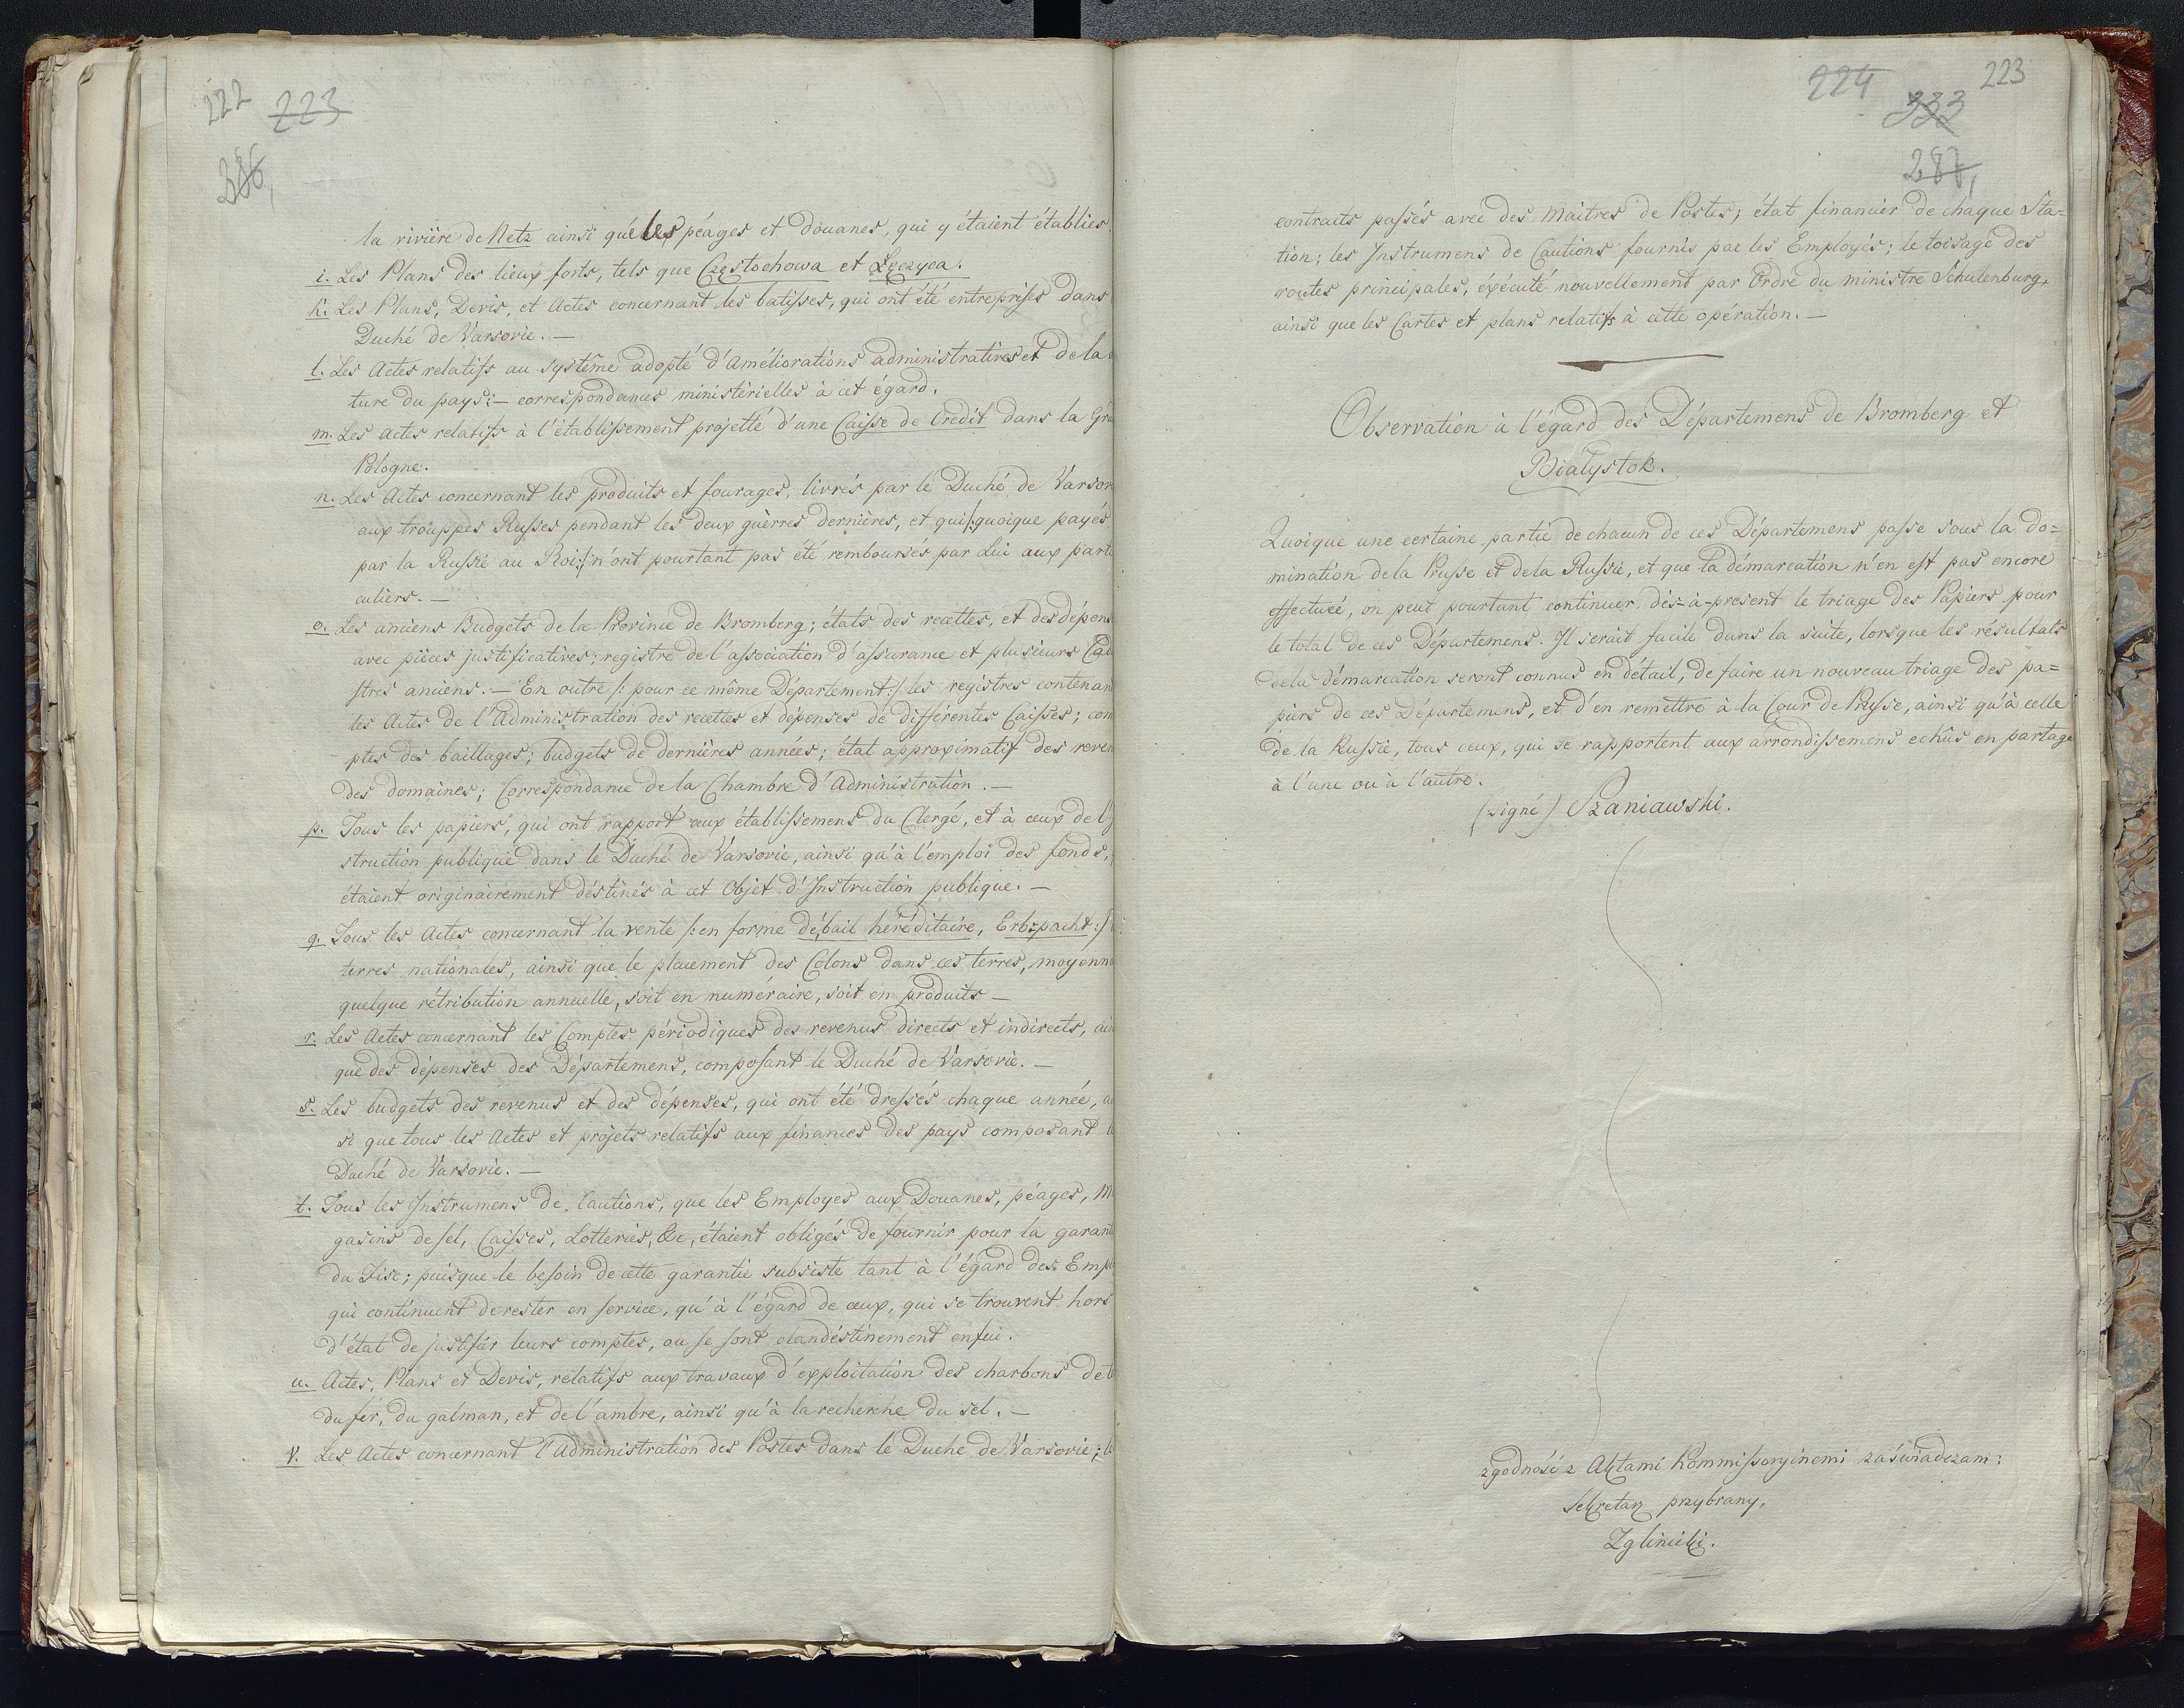 222 223
386,
la rivière de Netz ainsi que les péages et douanes, qui y étaient établies.
i. Les Plans des lieux forts, tels que Częstochowa et Łęczyca.
k. Les Plans, Devis, et Actes concernant les batisses, qui ont été entreprises dans
Duché de Varsovie. —
l. Les Actes relatifs au système adopté d'Améliorations administratives et de la
ture du pays: — correspondances ministérielles à cet égard.
m. Les Actes relatifs à l'établissement projetté d'une Caisse de Credit dans la Gra
Pologne.
n. Les Actes concernant les produits et fourages, livrés par le Duché de Varsov
aux trouppes Russes pendant les deux guèrres dernières, et qui /: quoique payés
par la Russie au Roi :/ n'ont pourtant pas été remboursés par Lui aux parti
culiers. —
o. Les anciens Budgets de la Province de Bromberg; états des recettes, et des dépens
avec pièces justificatives; registre de l'association d'assurance et plusieurs Cad
stres anciens. — En outre /: pour ce même Département :/ les registres contenan
les Actes de l'Administration des recettes et dépenses de différentes Caisses; com
ptes des baillages; budgets de dernières années; état approximatif des reven
des domaines; Correspondance de la Chambre d'Administration. —
p. Tous les papiers, qui ont rapport aux établissemens du Clergé, et à ceux de l'J
struction publique dans le Duché de Varsovie, ainsi qu'à l'emploi des fonds,
étaient originairement déstinés à cet Objet d'Instruction publique. —
q. Tous les Actes concernant la vente /: en forme de bail héréditaire, Erb=pacht :/
terres nationales, ainsi que le placement des Colons dans ces terres, moyenn
quelque rétribution annuelle, soit en numéraire, soit en produits —
r. Les Actes concernant les Comptes périodiques des revenus directs et indirects, ain
que des dépenses des Départemens, composant le Duché de Varsovie. —
s. Les budgets des revenus et des dépenses, qui ont été dressés chaque année, a
si que tous les Actes et projets relatifs aux finances des pays composant le
Duché de Varsovie. —
t. Tous les Instrumens de Cautions, que les Employes aux Douanes, péages, M
gasins de sel, Caisses, Lotteries, &c, étaient obligés de fournir pour la garant
du Fisc; puisque le besoin de cette garantie subsiste tant à l'égard des Empl
qui continuent de rester en service, qu'à l'égard de ceux, qui se trouvent hors
d'état de justifier leurs comptes, ou se sont clandéstinement enfui.
u. Actes, Plans et Devis, relatifs aux travaux d'exploitation des charbons de t
du fer, du galman, et de l'ambre, ainsi qu'à la recherche du sel. —
v. Les Actes concernant l'Administration des Postes dans le Duché de Varsovie; le
224 333 223
287,
contracts passés avec des Maitres de Postes; état financier de chaque Sta=
tion; les Instrumens de Cautions fournis par les Employés; le toisage des
routes principales, éxécuté nouvellement par Ordre du ministre Schulenburg,
ainsi que les Cartes et plans relatifs à cette opération. —
Observation à l'égard des Départemens de Bromberg et
Białystok.
Quoique une certaine partie de chacun de ces Départemens passe sous la do=
mination de la Prusse et de la Russie, et que la démarcation n'en est pas encore
effectuée, on peut pourtant continuer dés-à-present le triage des Papiers pour
le total de ces Départemens. Il serait facile dans la suite, lorsque les résultats
de la démarcation seront connus en détail, de faire un nouveau triage des pa=
piers de ces Départemens, et d'en remettre à la Cour de Prusse, ainsi qu'à celle
de la Russie, tous ceux, qui se rapportent aux arrondissemens echûs en partage
à l'une ou à l'autre.
(signé) Szaniawski.
zgodność z Aktami Kommissoryinemi zaświadczam:
Sekretarz przybrany,
Zglinicki.